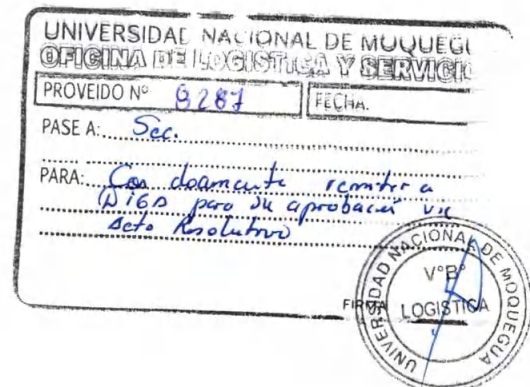 UNIVERSIDAD NACIONAL DE MOQUEGU
OFICINA DE LOGISTICA Y SERVICIO
PROVEIDO Nº 8287 FECHA.
PASE A: Sec.
PARA: Con documento remitir a
DIGA para su aprobación vía
Acto Resolutivo
FIRMA
UNIVERSIDAD NACIONAL DE MOQUEGUA
VºBº
LOGISTICA